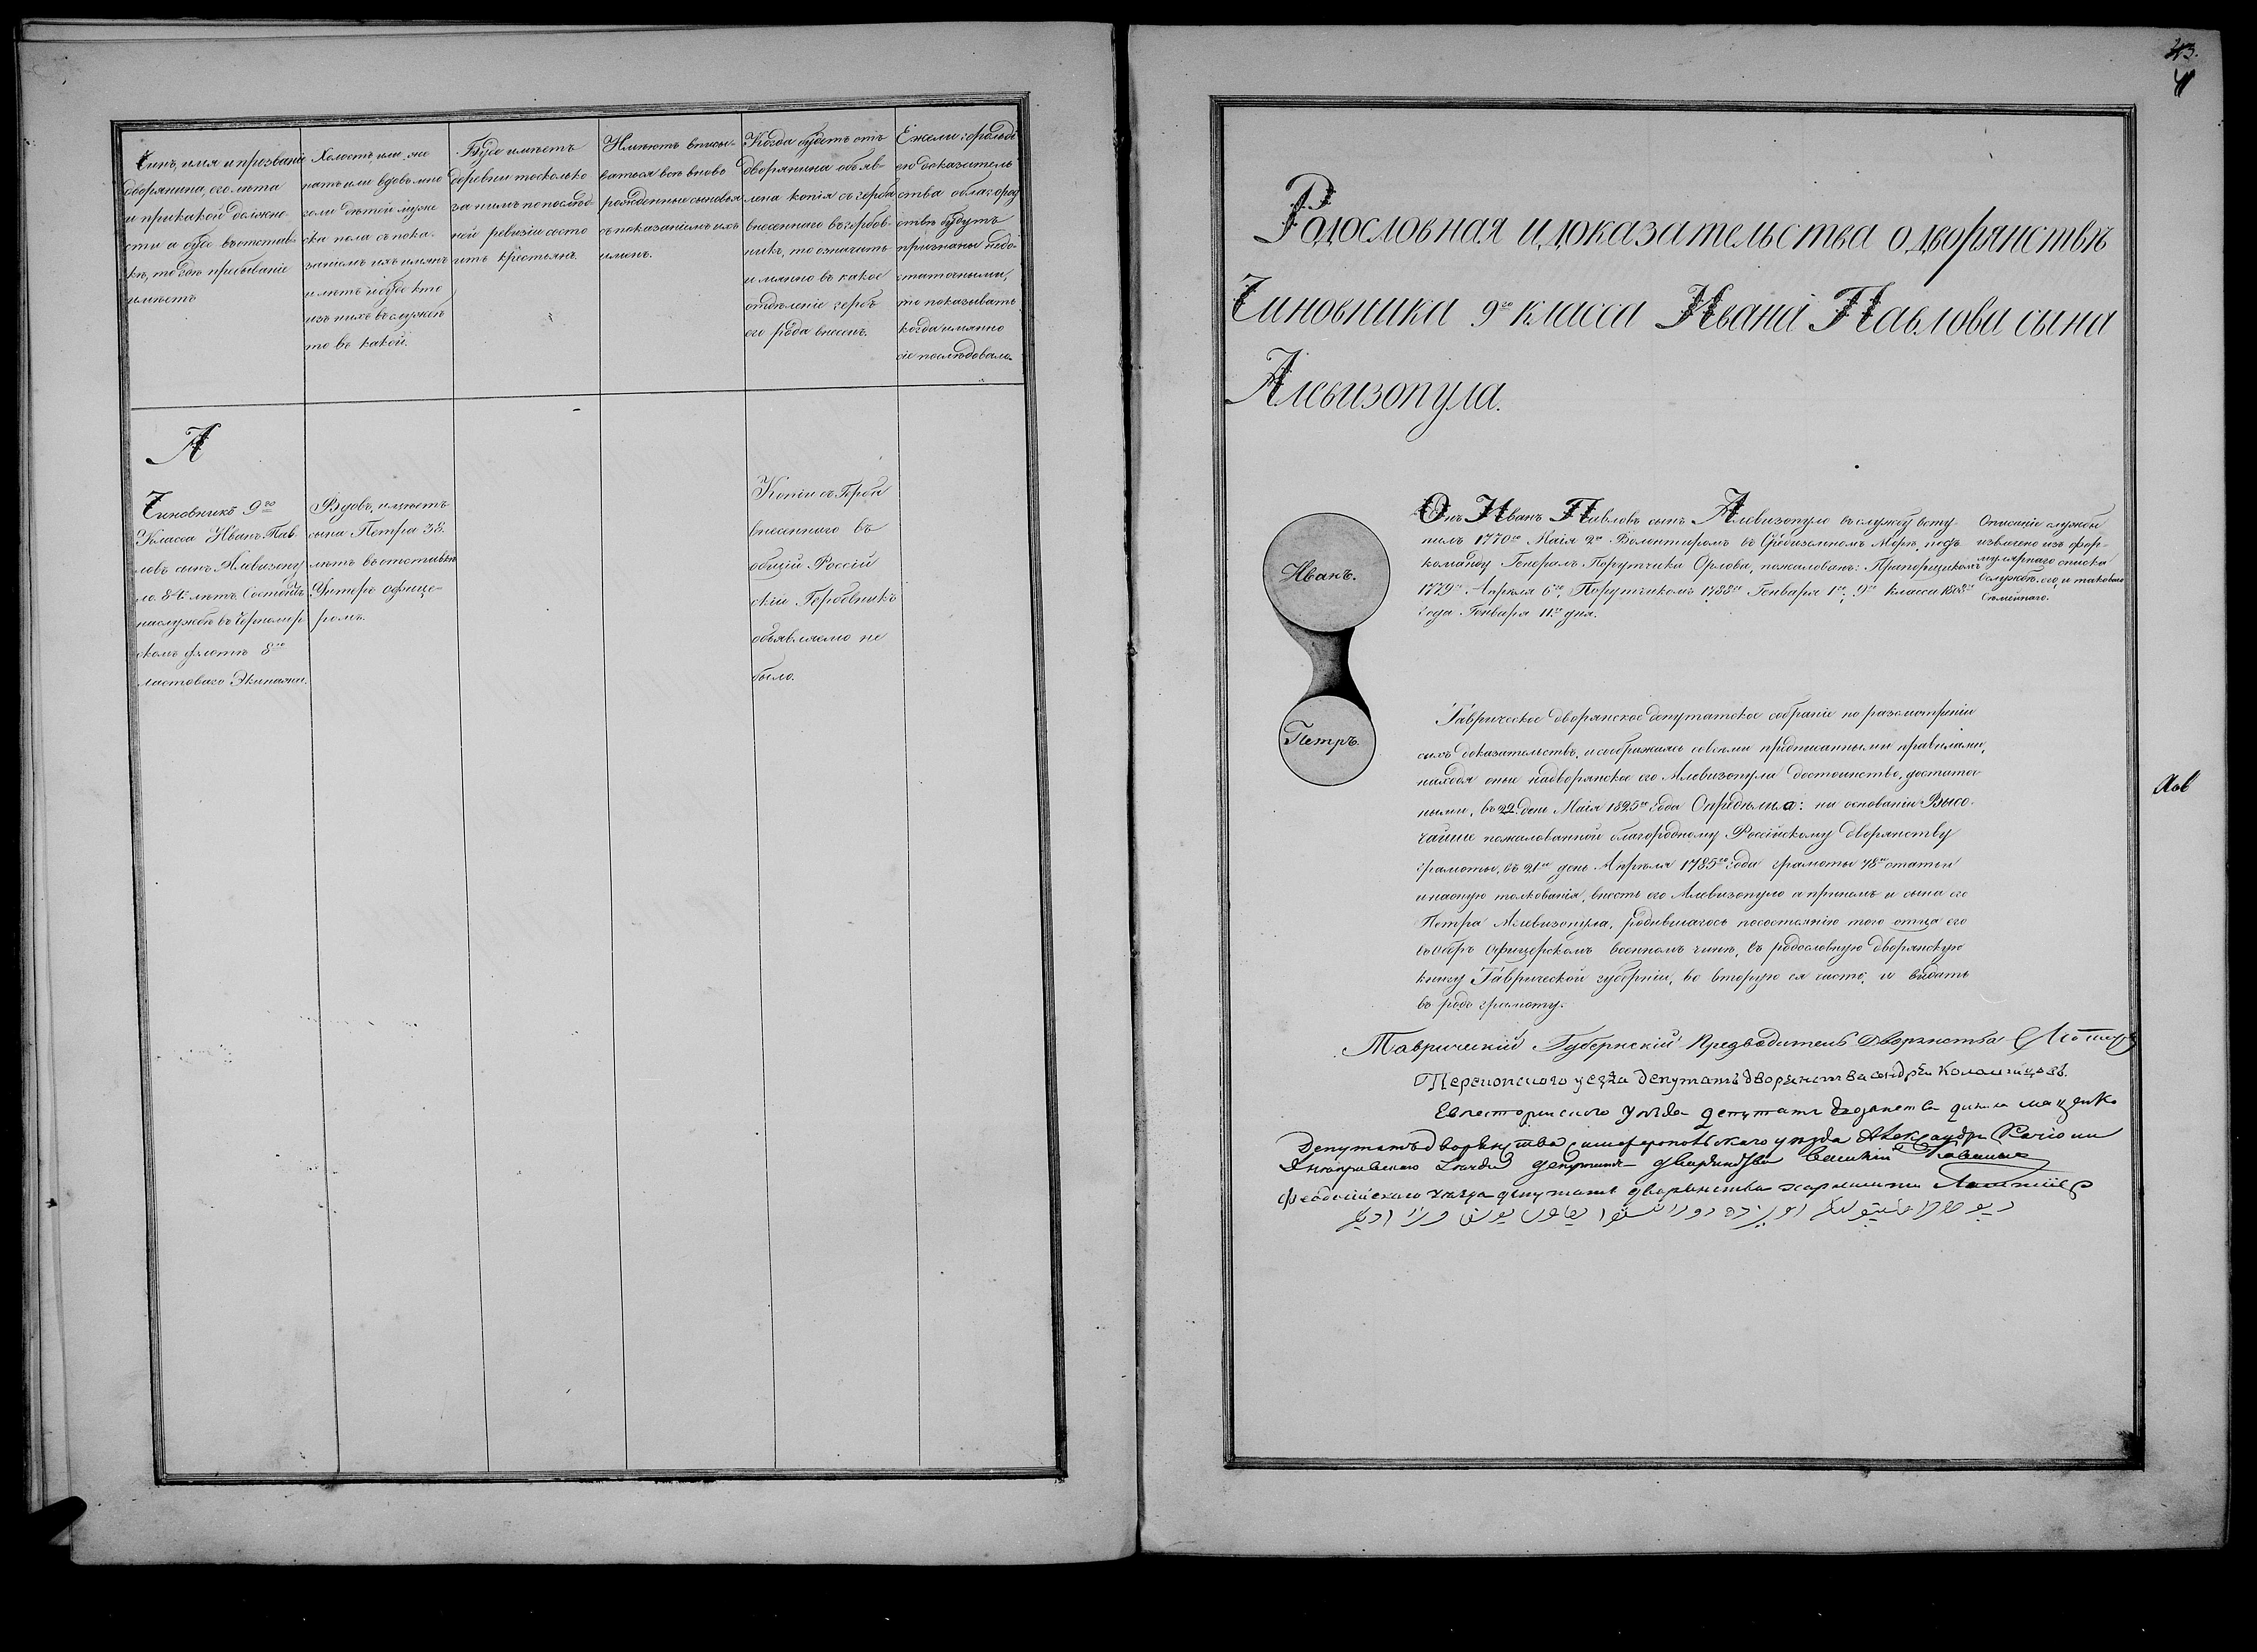 Чинъ, имя и прозваніе
дворянина, его лѣта
и при какой должно-
сти а буде въ отстав-
кѣ, то гдѣ пребываніе
имѣетъ
Холостъ, или же-
натъ или вдовъ, мно
голи дѣтей муже
ска пола съ пока-
заніемъ ихъ имянъ
и лѣтъ и буде кто
изъ нихъ въ службѣ
то въ какой.
Буде имѣетъ
деревни то сколько
за нимъ по послѣд-
ней ревизіи состо
итъ крестьянъ.
Имѣютъ вписы-
ваться всѣ вновь
рожденные сыновья
съ показаніемъ ихъ
именъ.
Когда будетъ отъ
дворянина объяв-
лена копія съ герба
внесеннаго въ гербов-
никъ, то означить
имянно въ какое
отдѣленіе гербъ
его рода внесенъ.
Ежели герольді
ею доказатель
ства о благород
ствѣ будутъ
признаны недо-
статочными,
то показывать
когда имянно
сіе послѣдовало.
А
Чиновникъ 9го
Класса Иванъ Пав
ловъ сынъ Алевизопу
ло 84 лѣтъ. Состоитъ
на службѣ въ Черномор
скомъ флотѣ 8го
ластоваго Экипажа.
Вдовъ, имѣетъ
сына Петра 38.
лѣтъ въ отставкѣ
Унтеръ офице-
ромъ.
Копіи съ Герба
внесеннаго въ
общій Россій
скій Гербовникъ
объявляемо не
было.
43.
Родословная и доказательства о дворянствѣ
Чиновника 9го класса Ивана Павлова сына
Алевизопула.
Иванъ.
Петръ.
Онъ Иванъ Павловъ сынъ Алевизопуло въ службу всту-
пилъ 1770го Маія 2го Волонтиромъ въ Средиземномъ Морѣ, подъ
команду Генералъ Порутчика Орлова, пожалованъ: Прапорщикомъ
1779го Апрѣля 6го, Порутчикомъ 1788го Генваря 1го, 9го класса 1808го
года Генваря 11го дня.
Описаніе службы
извлечено изъ фор-
мулярнаго списка
о службѣ его, и таковаго
Семейнаго.
Таврическое дворянское депутатское собраніе по разсмотреніи
сихъ доказательствъ, и соображаясь совсеми предписанными правилами,
находя оные на дворянское его Алевизопула достоинство, достаточ
ными, въ 22. день Маія 1825го года Опредѣлила: на основаніи Высо-
чайше пожалованной благородному Россійскому дворянству
грамоты, въ 21го день Апрѣля 1785го года грамоты 78го статьи
и на оную толкованія, внесть его Алевизопуло а при немъ и сына его
Петра Алевизопула, родившагось по состоянію того отца его
въ Оберъ Офицерскомъ военномъ чинѣ, въ родословную дворянскую
книгу Таврической губерніи, во вторую ея часть, и выдать
въ родъ грамоту.
Таврическій Губернскій Предводитель Дворянства
Перекопского уезда депутатъ дворянства андрей Коломийцовъ.
Евпаторинского уѣзда депутатъ дворянства
Депутатъ дворянства симферопольскаго уѣзда Александръ
Днепровскаго уѣзда депутатъ дворянства Василій
Феодосійскаго уѣзда депутатъ дворянства